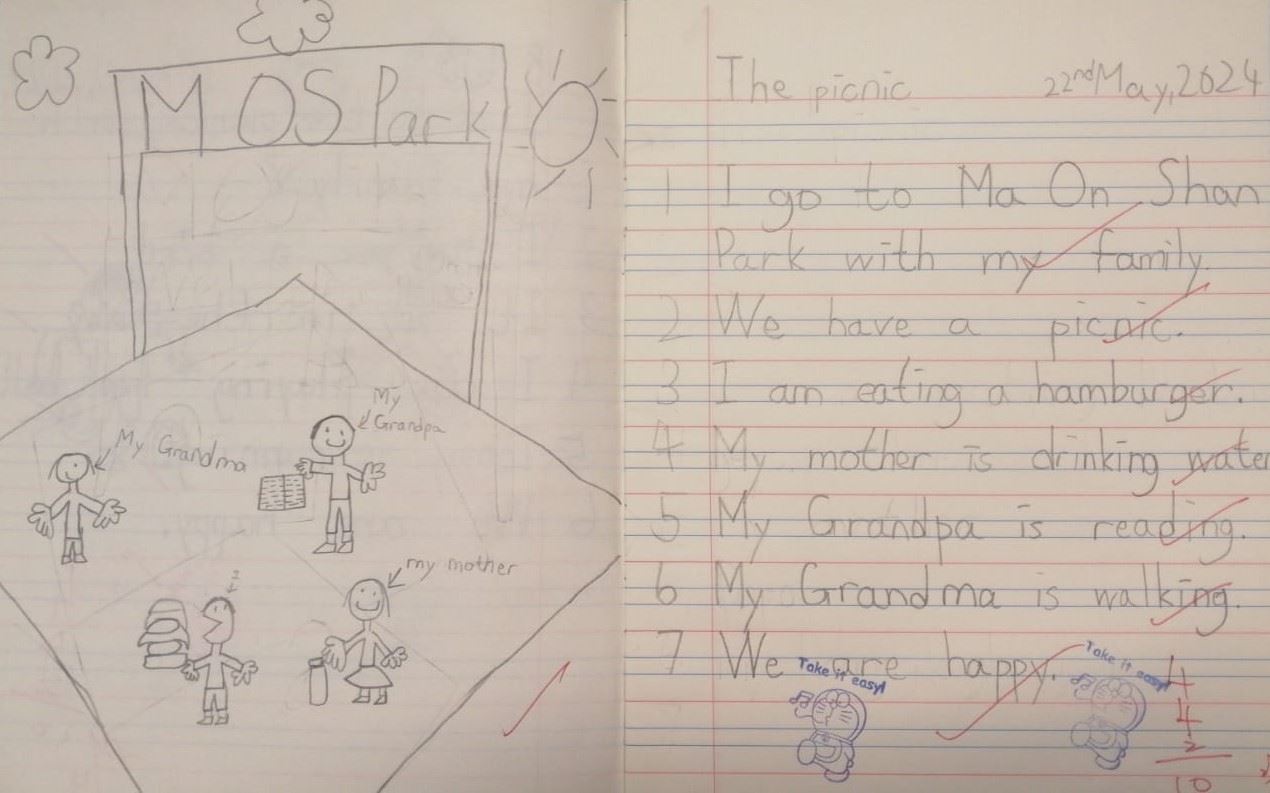 MOS Park
My Grandma
My
Grandpa
my mother
The picnic 22nd May, 2024
1 I go to Ma On Shan
Park with my family.
2 We have a picnic.
3 I am eating a hamburger.
4 My mother is drinking water
5 My Grandpa is reading.
6 My Grandma is walking.
7 We are happy.
Take it easy!
Take it easy!
4
4
2
10